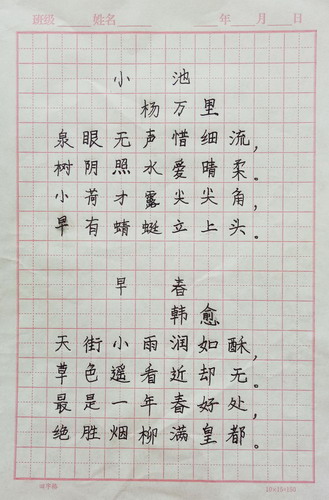 班级 姓名 年 月 日
小池
杨万里
泉眼无声惜细流，
树阴照水爱晴柔。
小荷才露尖尖角，
早有蜻蜓立上头。
早春
韩愈
天街小雨润如酥，
草色遥看近却无。
最是一年春好处，
绝胜烟柳满皇都。